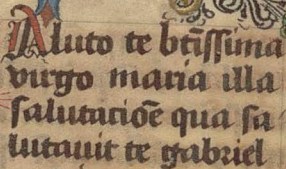 Aluto te btīssima
virgo maria illa
salutacioē qua sa
lutavit te gabriel